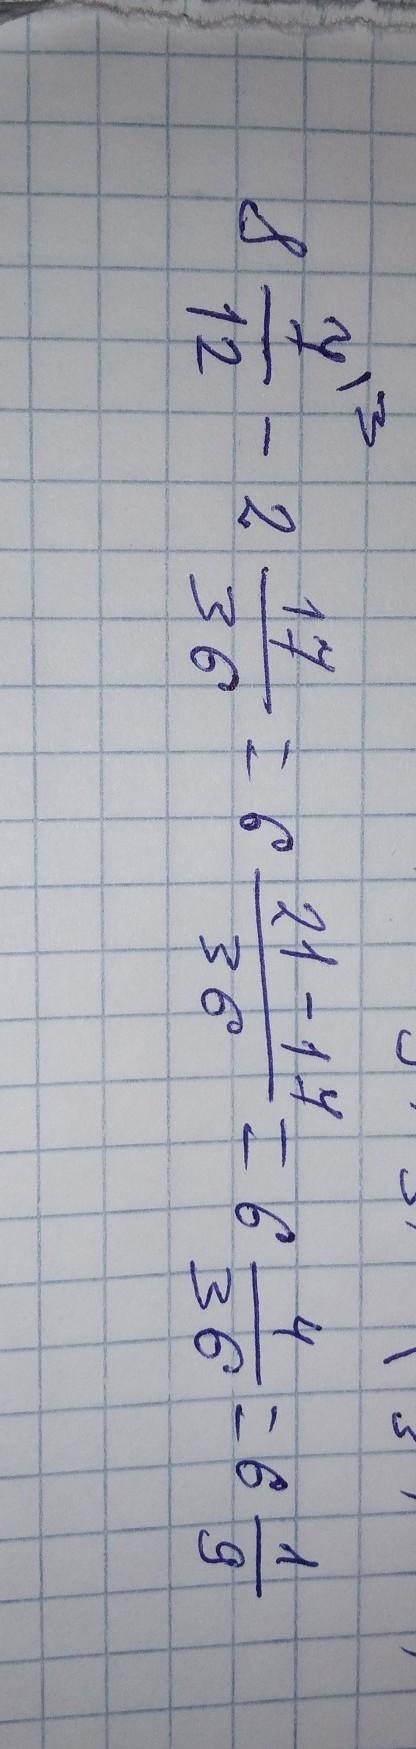 8 7\3/12 - 2 17/36 = 6 21-17/36 = 6 4/36 = 6 1/9